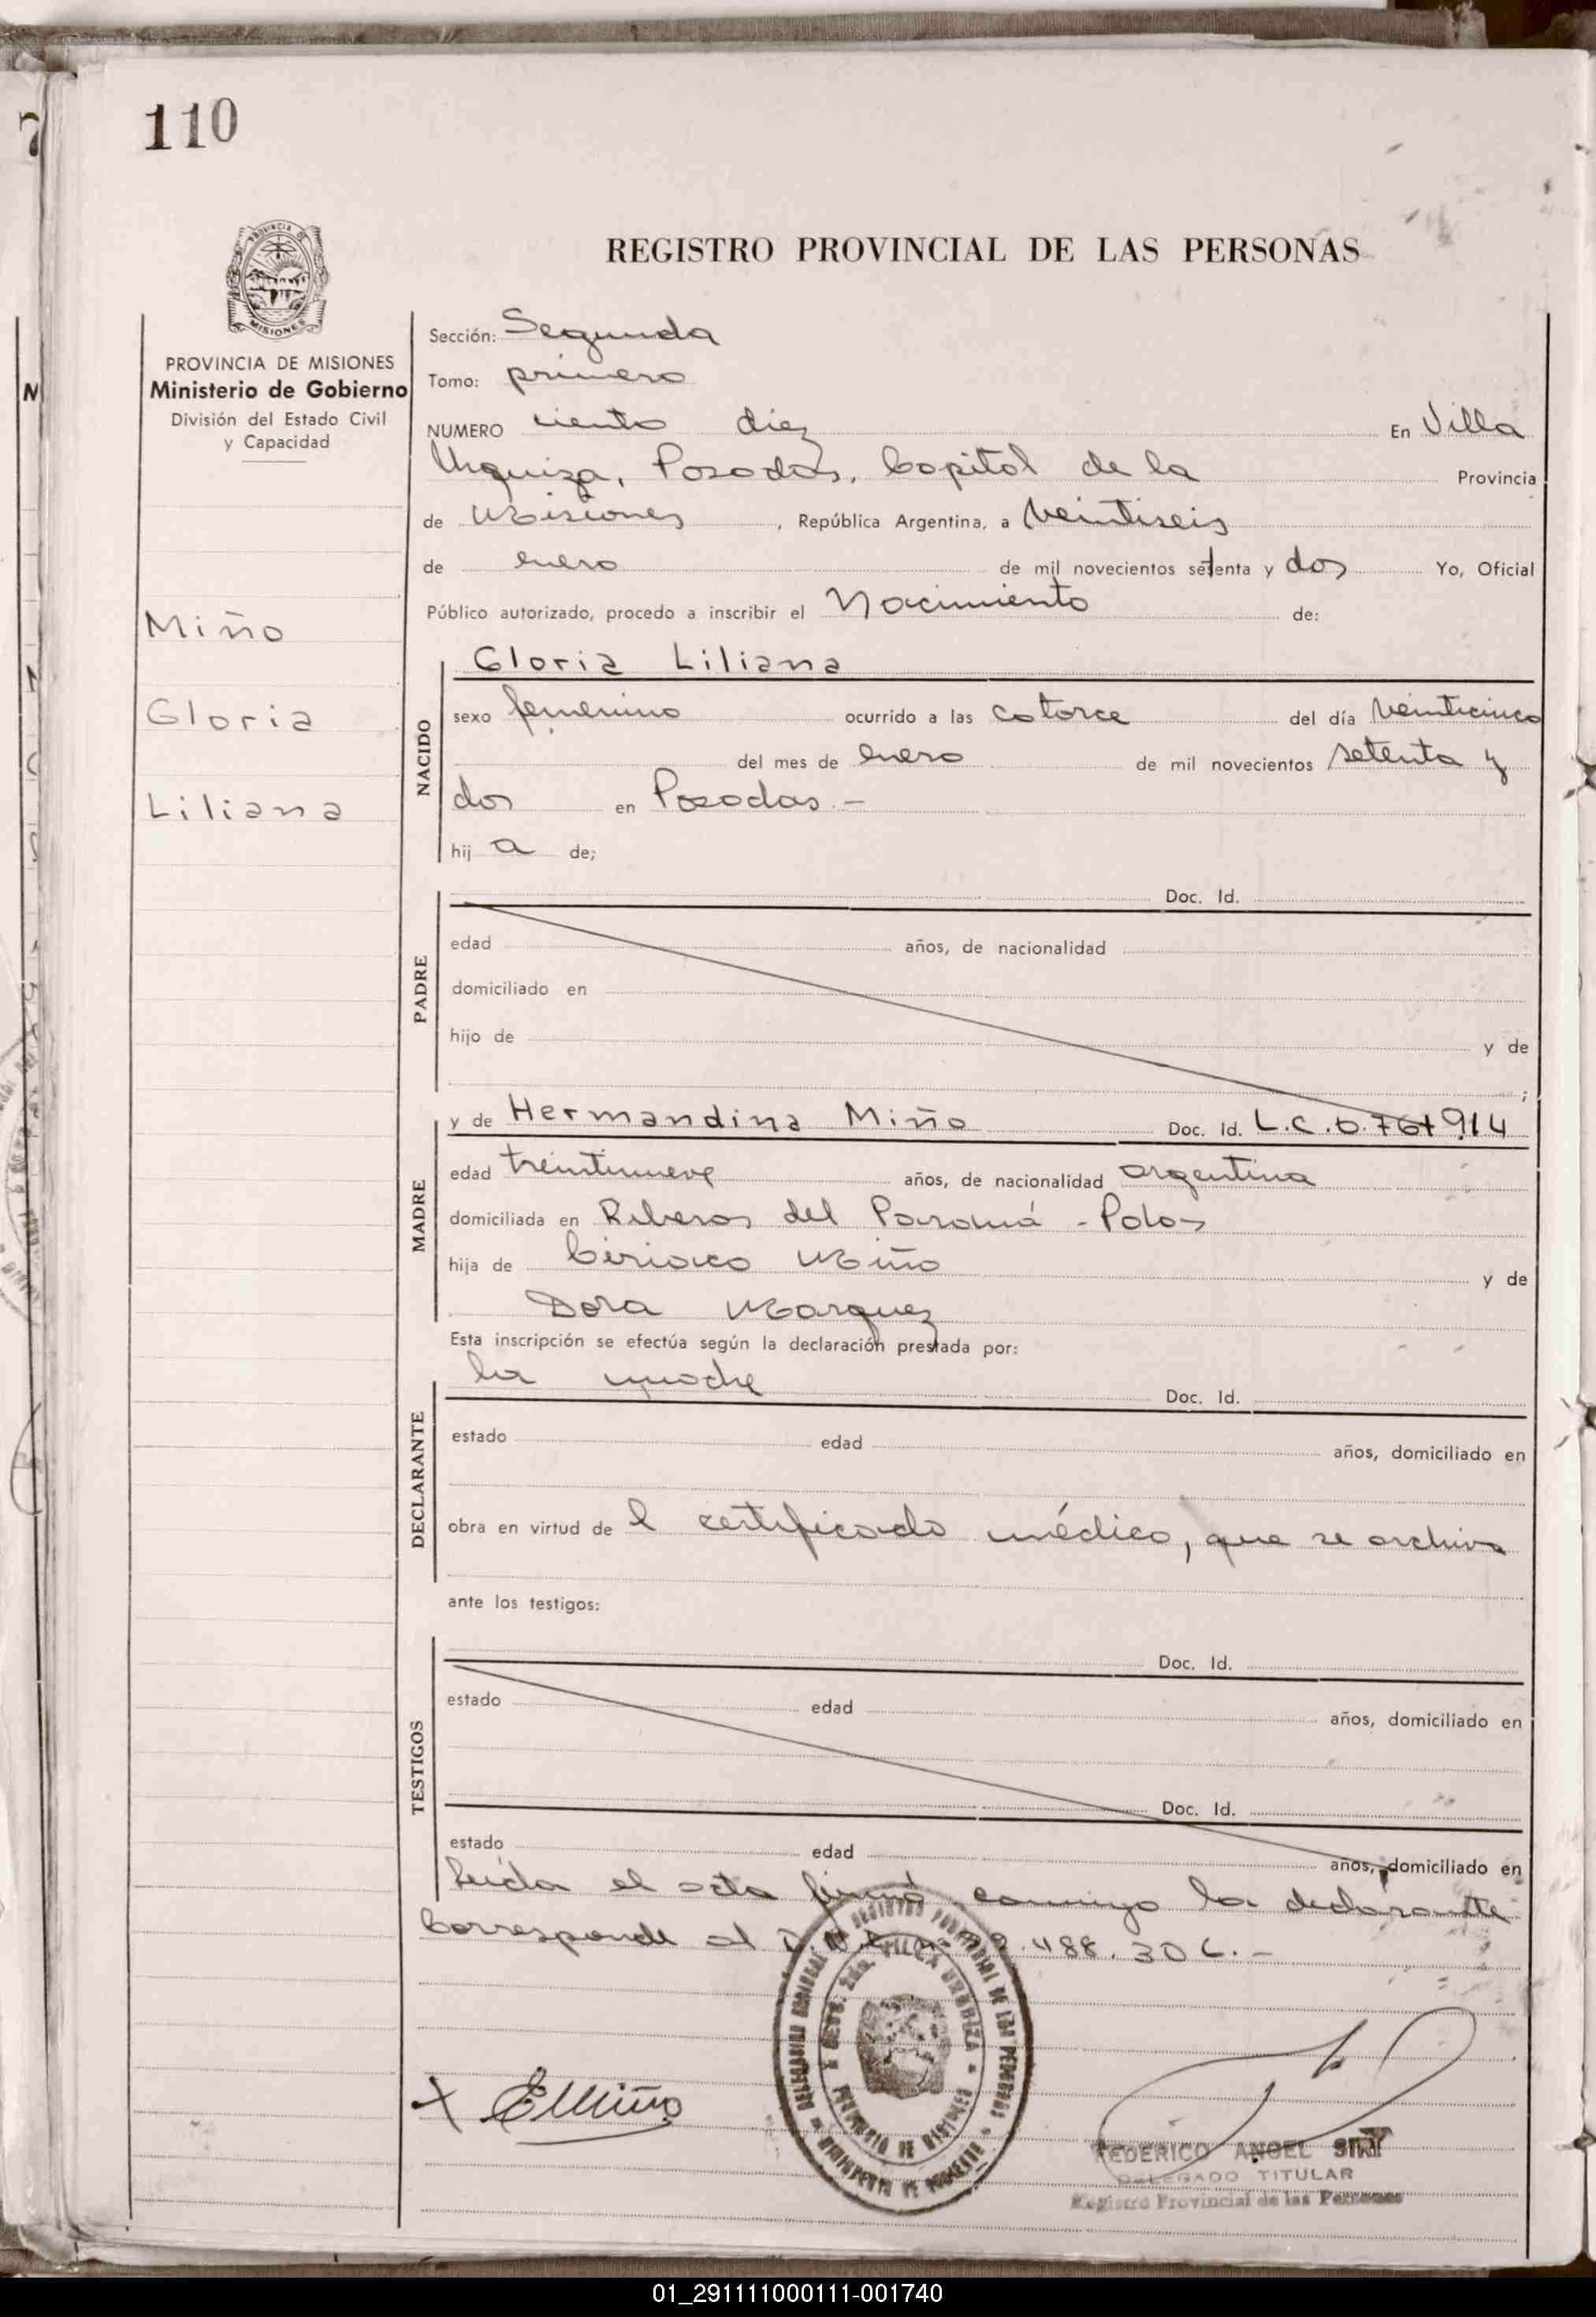 110
REGISTRO PROVINCIAL DE LAS PERSONAS
PROVINCIA DE MISIONES
Ministerio de Gobierno
División del Estado Civil
y Capacidad
Miño
Gloria
Liliana
Sección: Segunda
Tomo: primero
NUMERO ciento diez En Villa
Urquiza, Posadas, Capital de la Provincia
de Misiones, República Argentina, a veintiseis
de enero de mil novecientos setenta y dos Yo, Oficial
Público autorizado, procedo a inscribir el Nacimiento de:
NACIDO
Gloria Liliana
sexo femenino ocurrido a las catorce del día veinticinco
del mes de enero de mil novecientos setenta y
dos en Posadas.-
hij a de;
PADRE
Doc. Id.
edad años, de nacionalidad
domiciliado en
hijo de y de
;
MADRE
y de Hermandina Miño Doc. Id. L.C.
edad treintinueve años, de nacionalidad argentina
domiciliada en Riberas del Paraná -
hija de Ciriaco Miño y de
Dora Marquez
Esta inscripción se efectúa según la declaración prestada por:
DECLARANTE
la madre Doc. Id.
estado edad años, domiciliado en
obra en virtud de l certificado médico, que se archiva
ante los testigos:
TESTIGOS
Doc. Id.
estado edad años, domiciliado en
Doc. Id.
estado edad años, domiciliado en
Leida el acta firma conmigo la declarante
Corresponde al .488.306.-
EMiño
FEDERICO ANGEL
DELEGADO TITULAR
Registro Provincial de las Personas
01_291111000111-001740